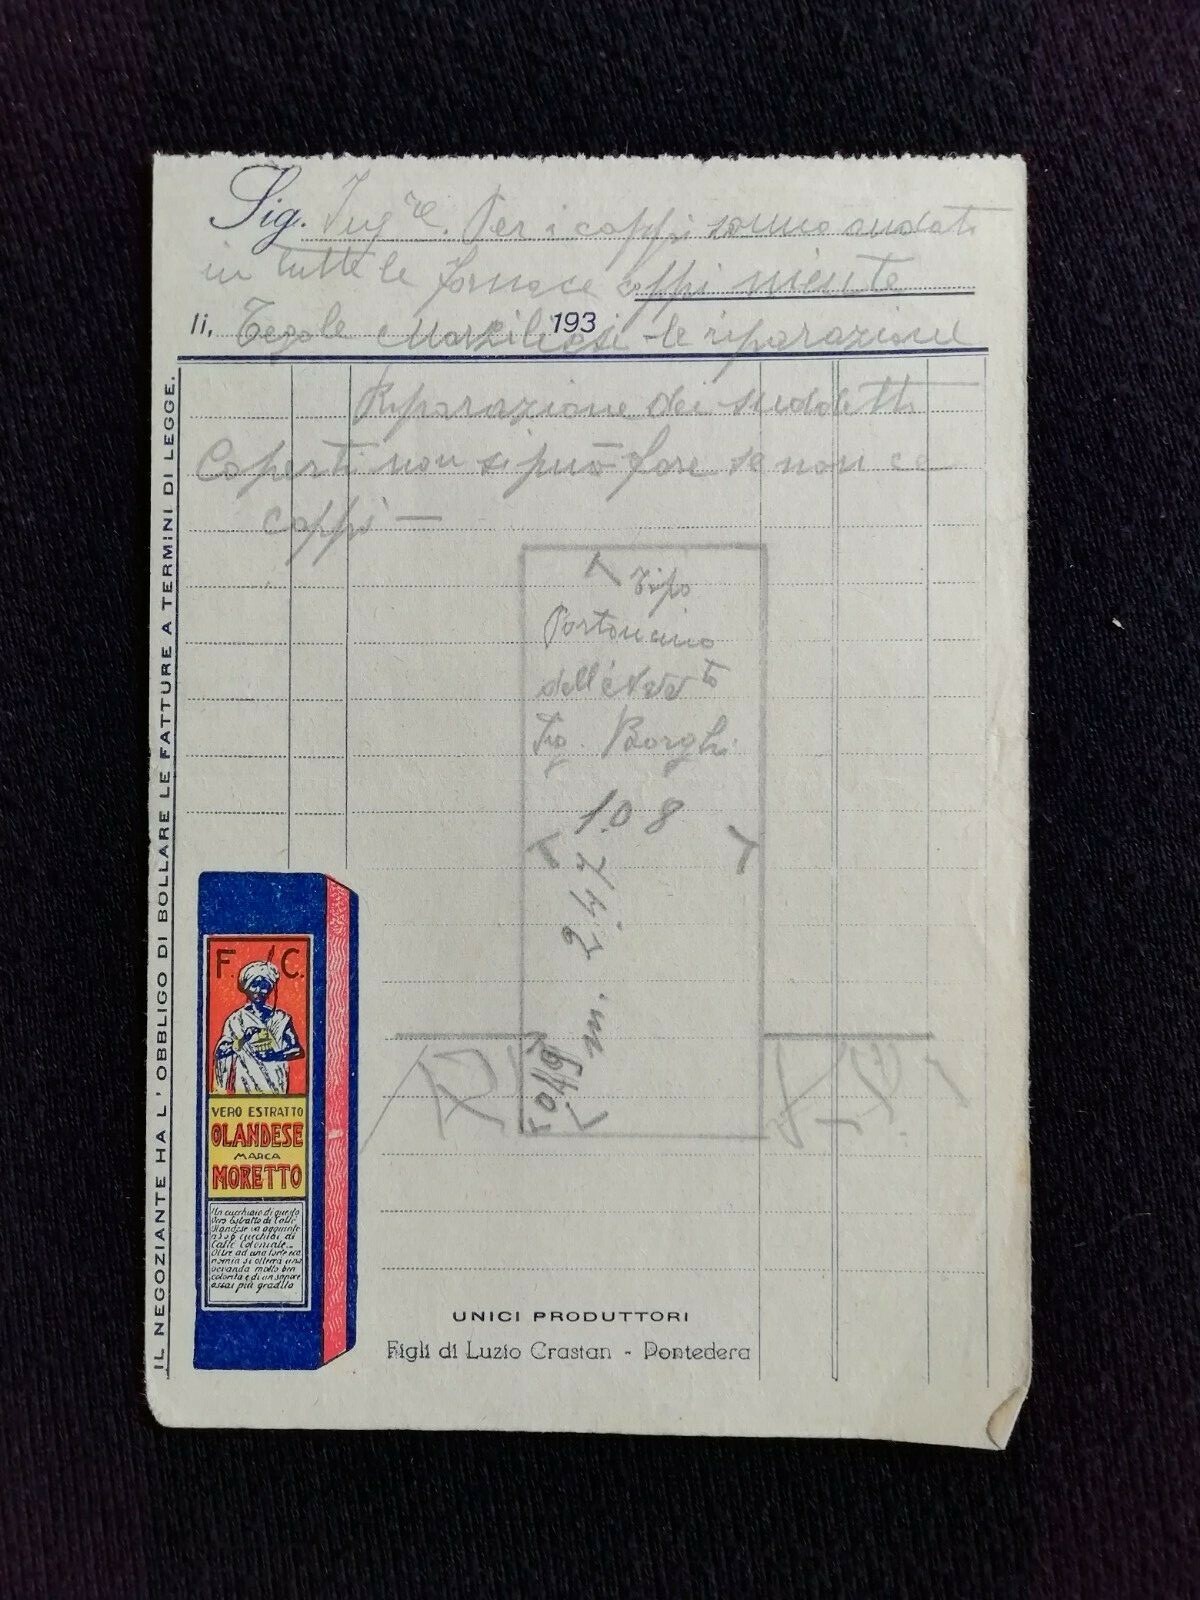 Sig. Ing re. Per i coppi sanno andati
in tutte le fornace coppi niente
li, Tegole Marsiliesi le riparazione
193
Riparazione dei sudetti
Coperti non si può fare se non ce
coppi —
Tipo
Portoncino
dell
Sig. Borghi
1.08
m. 2.47
0.49
IL NEGOZIANTE HA L'OBBLIGO DI BOLLARE LE FATTURE A TERMINI DI LEGGE.
F. C.
VERO ESTRATTO
OLANDESE
MARCA
MORETTO
Un cucchiaio di questo
Vero Estratto di Caffè
Olandese va aggiunto
a 5 o 6 cucchiai di
Caffè Coloniale...
Oltre ad una forte eco
nomia si otterrà una
bevanda molto ben
colorita e di un sapore
assai più gradito
UNICI PRODUTTORI
Figli di Luzio Crastan - Pontedera